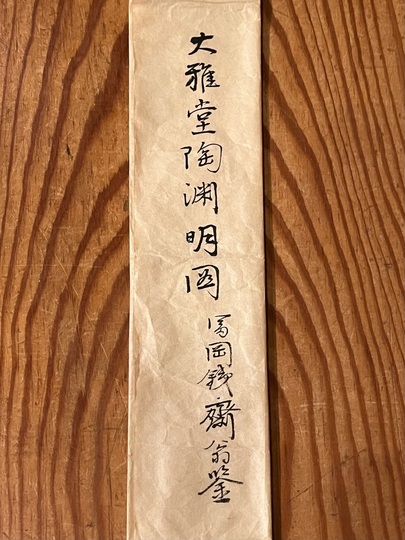 大雅堂陶渊明図
冨岡鉄斎翁鑒